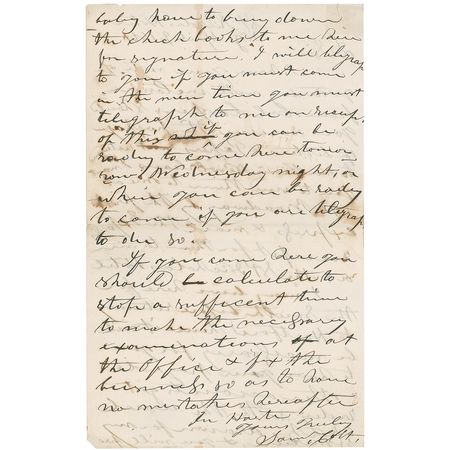 baby home to bring down
the check books to me here
for signature. I will telegraph
to you if you must come
in the mien time you must
telegraph to me on receipt
of this if you can be
ready to come here tomor
row Wednesday night, or
when you can be ready
to come if you are telegraph
to do so.
If you come here you
should calculate to
stop a sufficent time
to make the necessary
examenations at
the office & fx the
business so as to have
no mistakes hereafter
In Haste
Yours truly
Sam Colt.